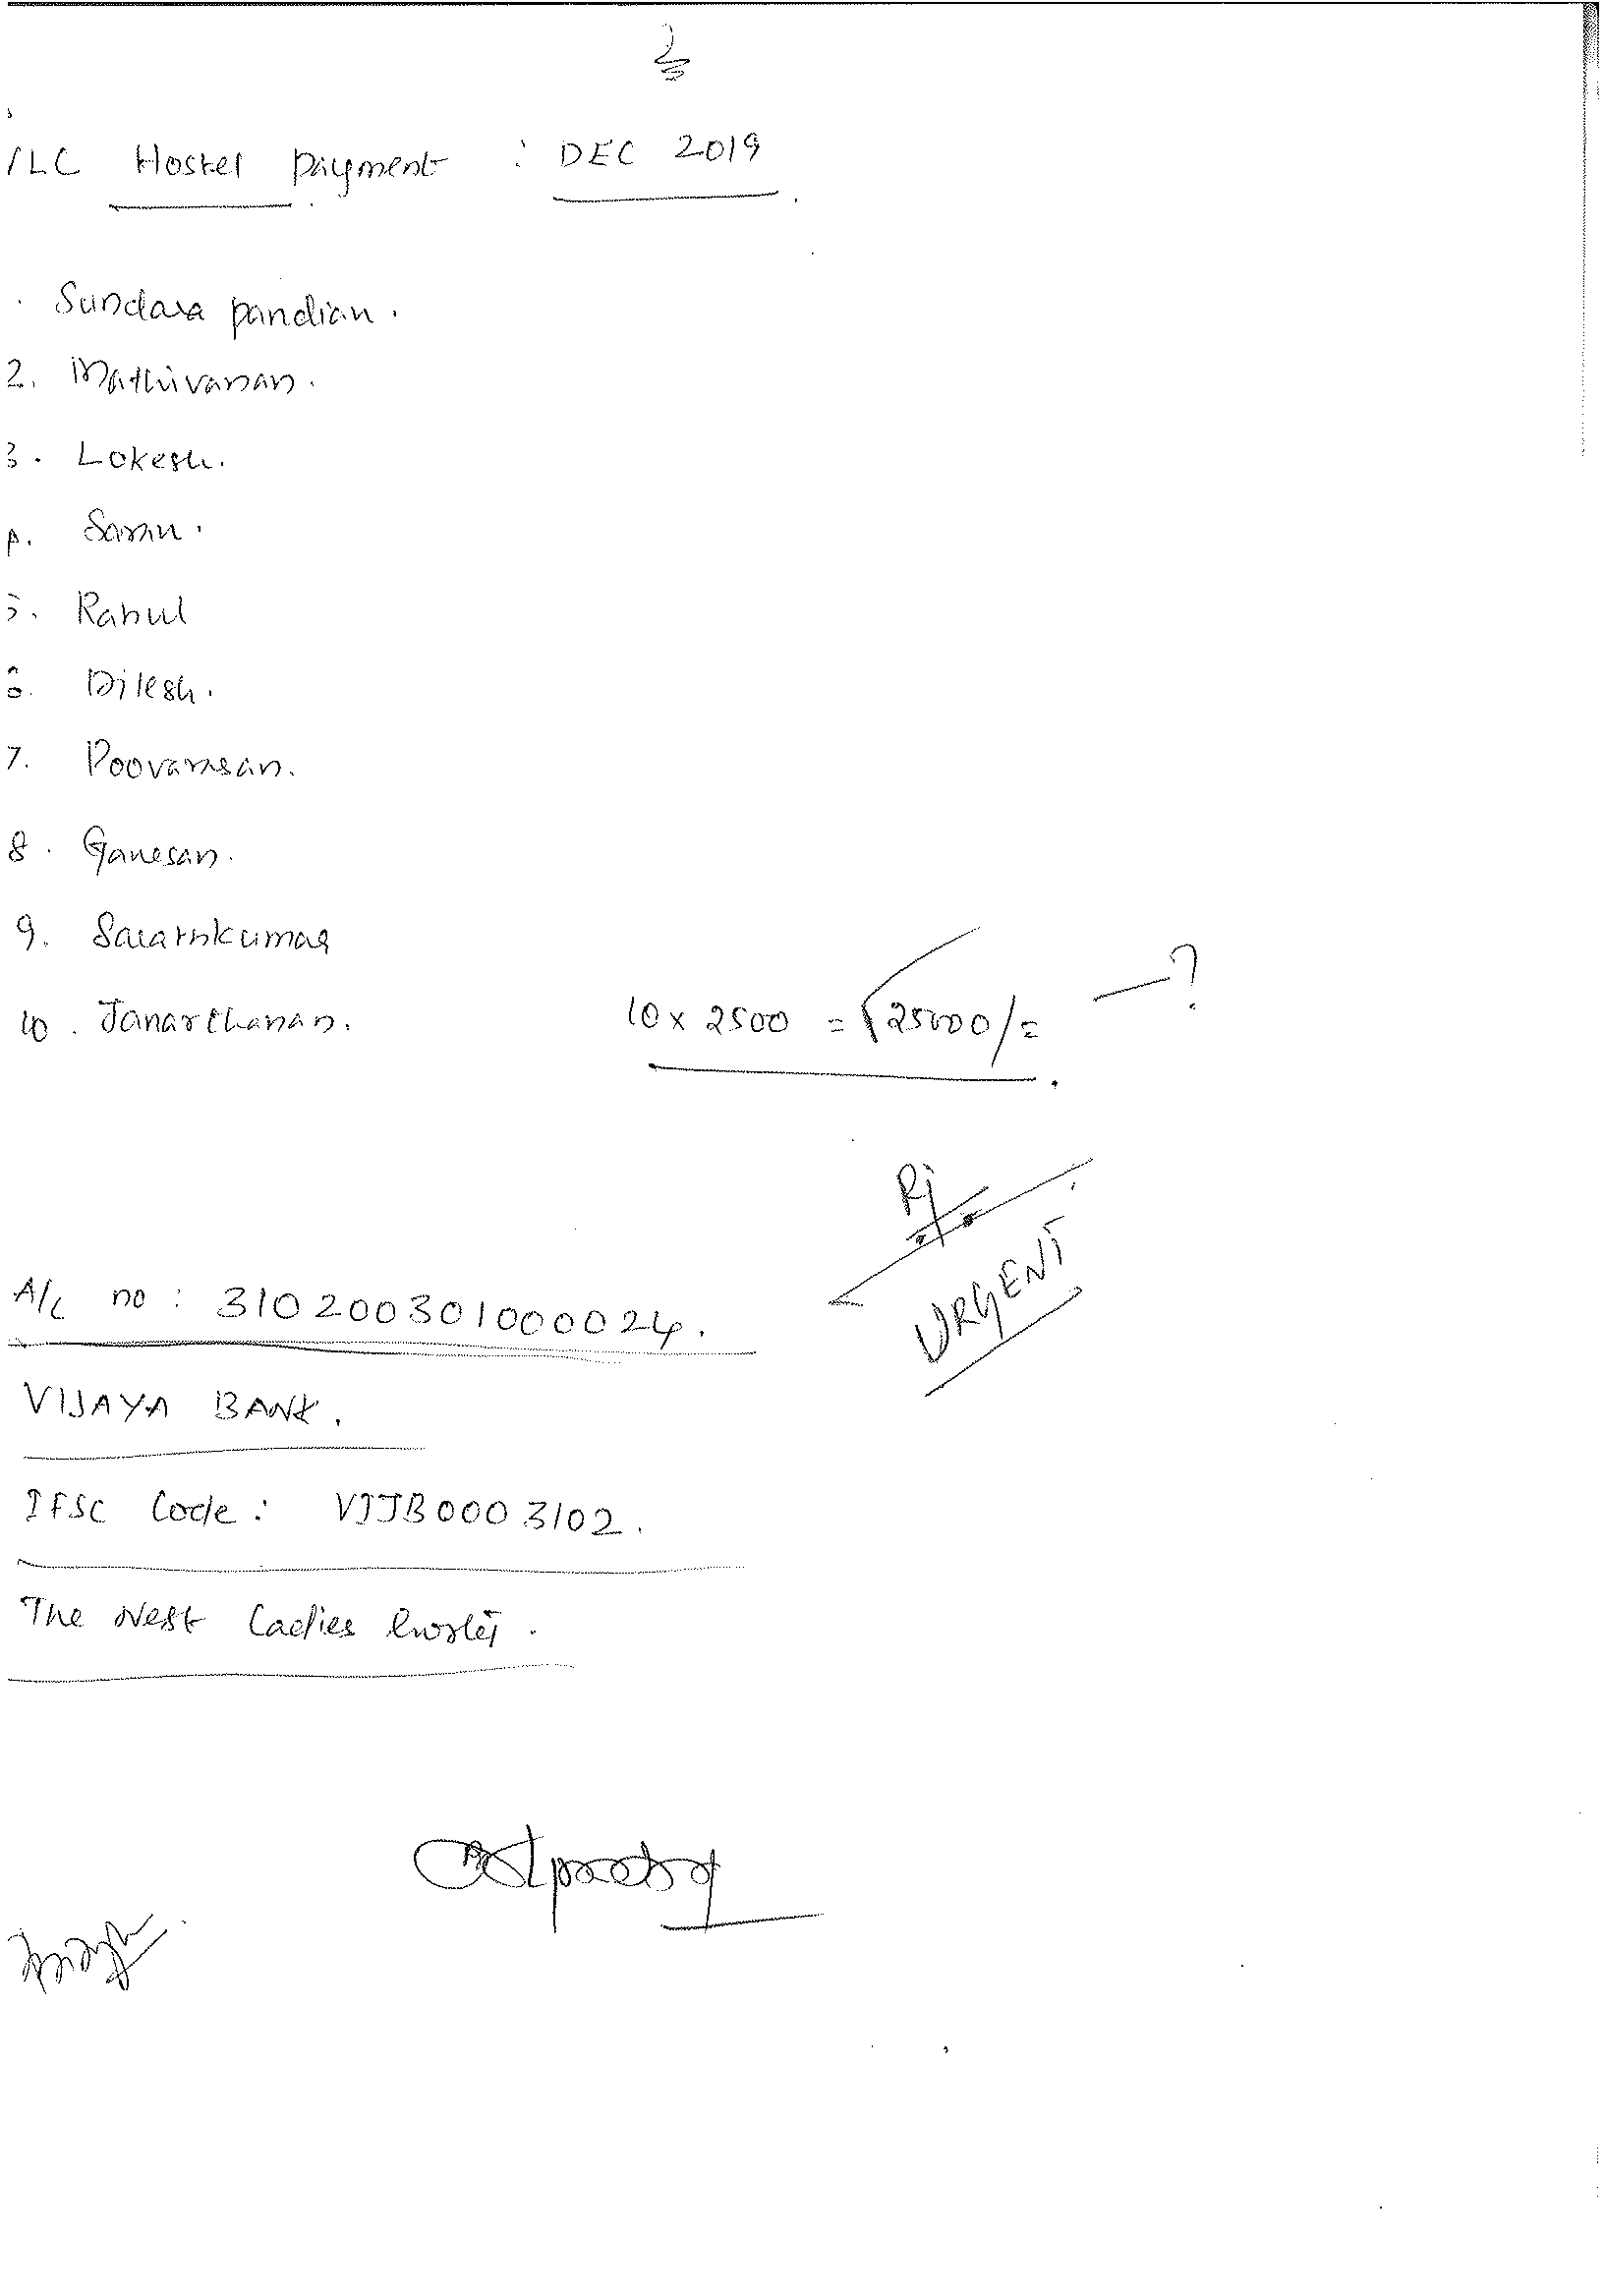 /LC Hostel Payment : DEC 2019
. Sundara pandian.
2. Mathivanan.
3. Lokesh.
4. Saran.
5. Rahul
6. Dilesh.
7. Poovarasan.
8. Ganesan.
9. Sarathkumar
10. Janarthanan.
10 x 2500 = 25000/= — ?
URGENT
A/c no : 310200301000024.
VIJAYA BANK.
IFSC Code : VIJB0003102.
The Nest Ladies hostel.